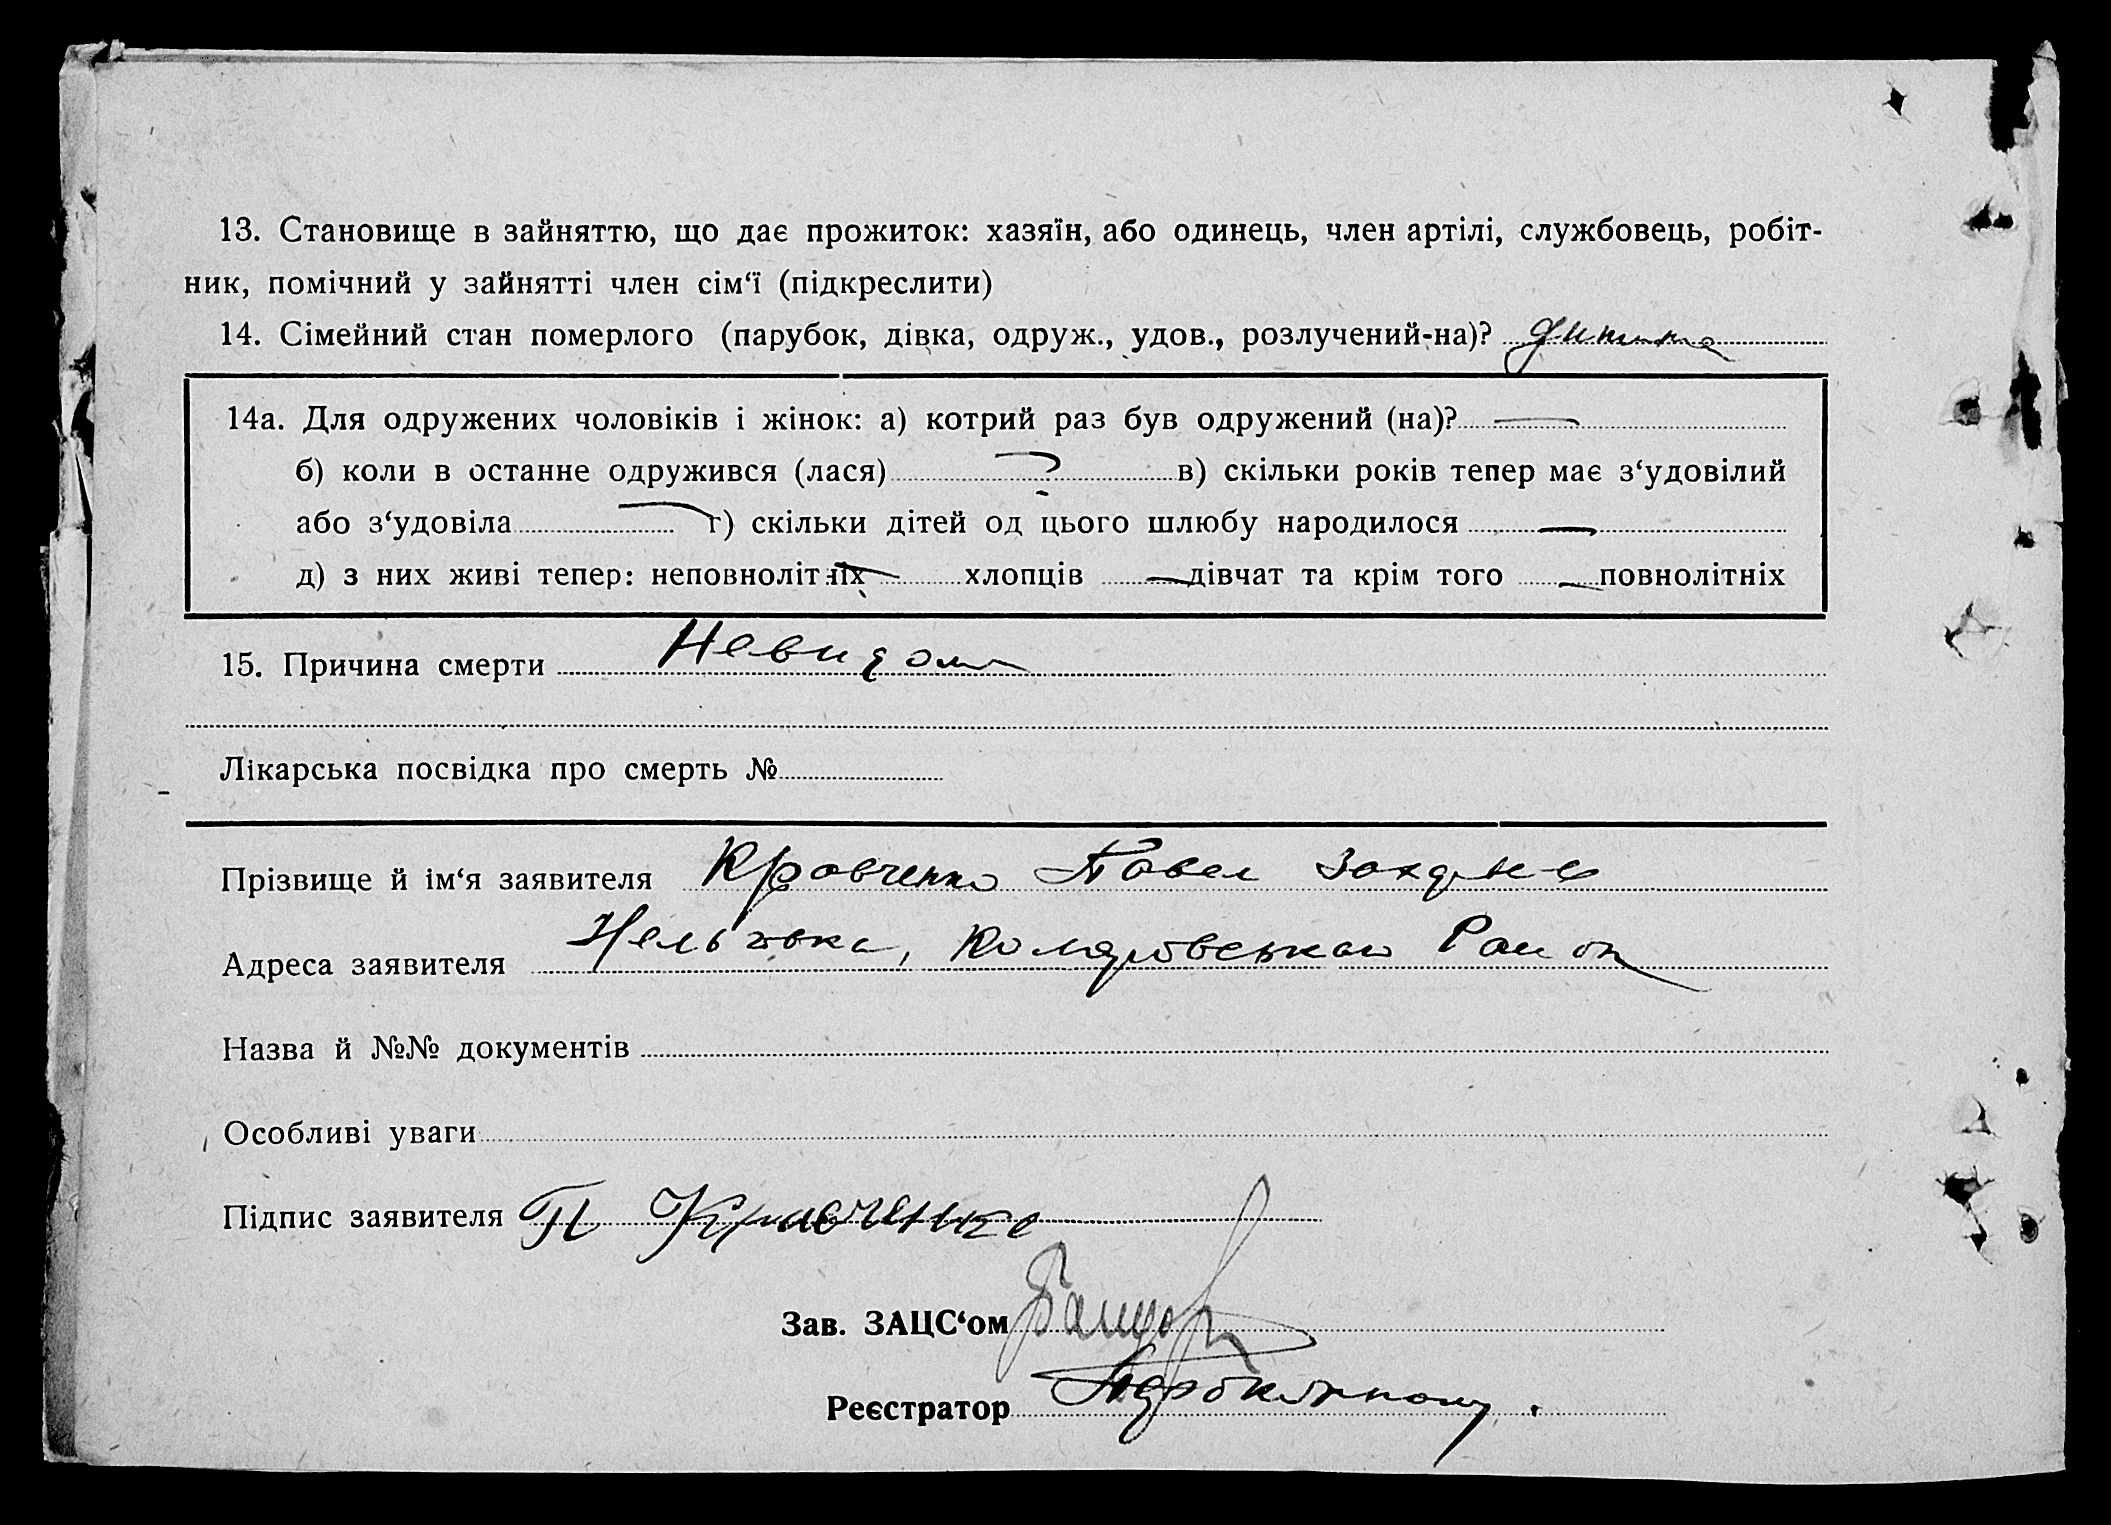 13. Становище в зайняттю, що дає прожиток: хазяїн, або одинець, член артілі, службовець, робіт-
ник, помічний у зайнятті член сім‘ї (підкреслити)
14. Сімейний стан померлого (парубок, дівка, одруж., удов., розлучений-на)? дитина
14а. Для одружених чоловіків і жінок: а) котрий раз був одружений (на)? —
б) коли в останне одружився (лася) ? в) скільки років тепер має з‘удовілий
або з‘удовіла — г) скільки дітей од цього шлюбу народилося —
д) з них живі тепер: неповнолітніх — хлопців — дівчат та крім того — повнолітніх
15. Причина смерти Невидома
Лікарська посвідка про смерть №
Прізвище й ім‘я заявителя Кравченко Павел
Адреса заявителя Район
Назва й №№ документів
Особливі уваги
Підпис заявителя П Кравченко
Зав. ЗАЦС‘ом
Реєстратор